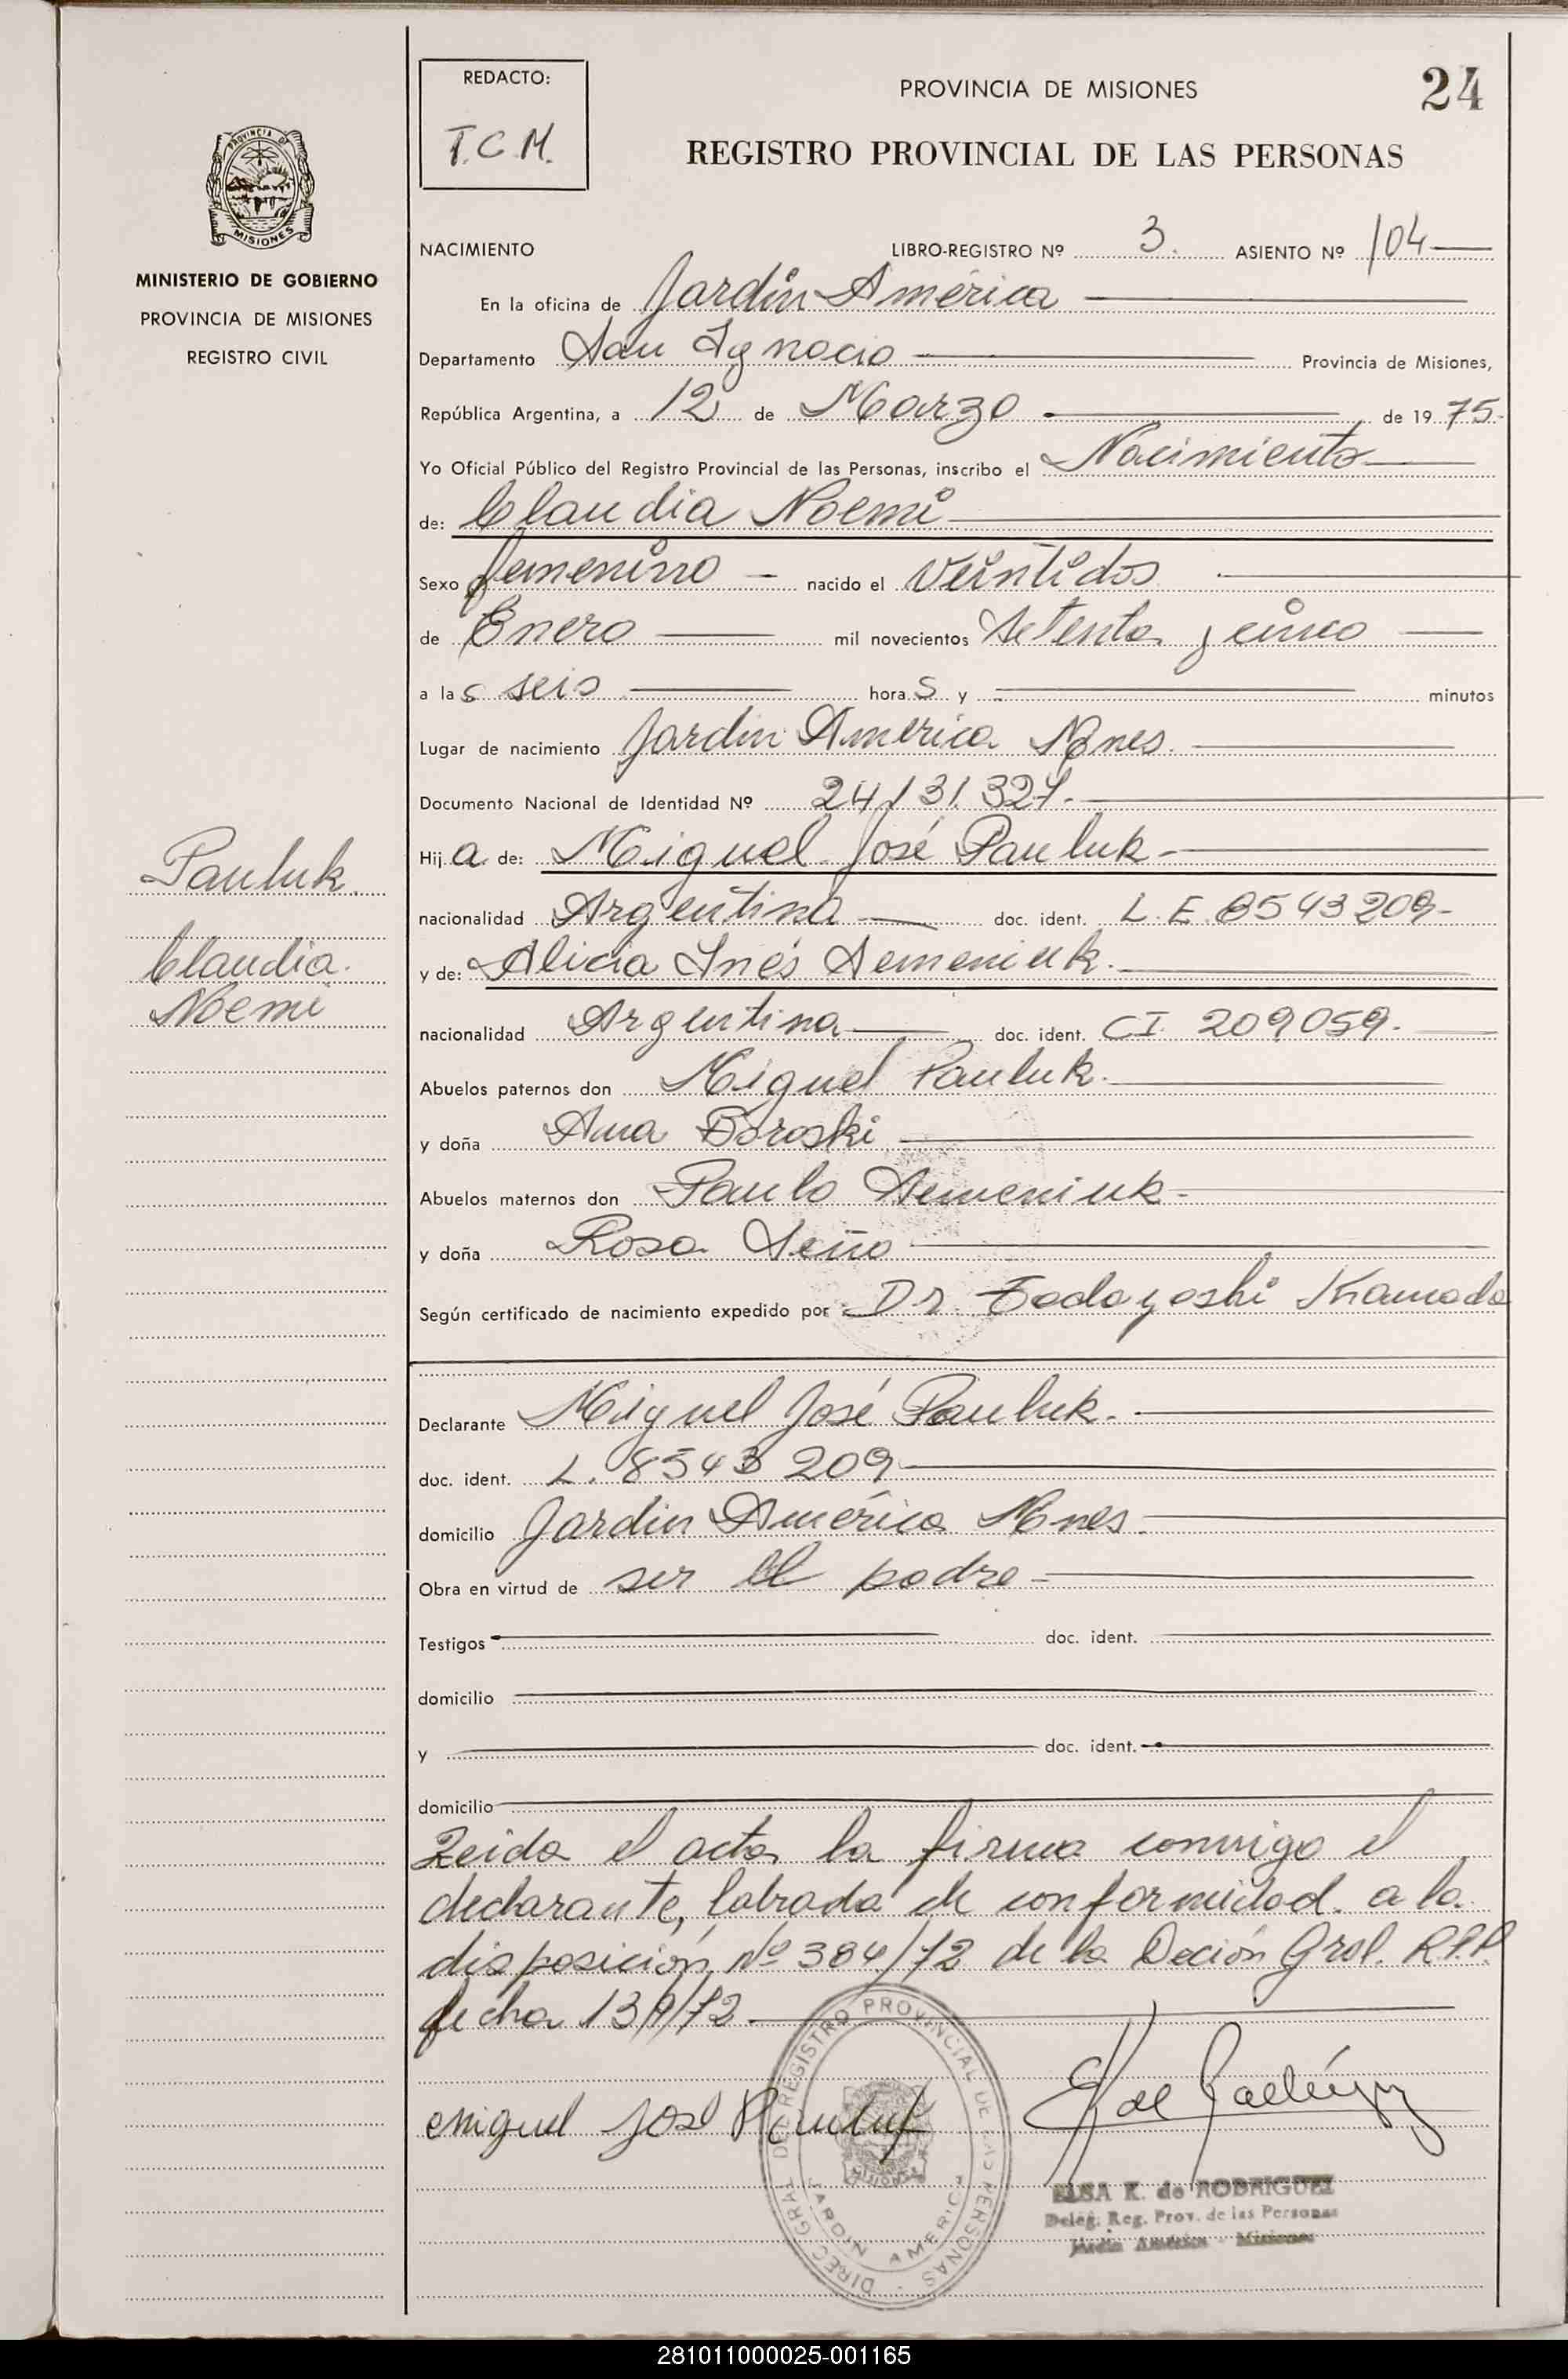 REDACTO:
T.C.M.
PROVINCIA DE MISIONES
24
REGISTRO PROVINCIAL DE LAS PERSONAS
PROVINCIA DE
MISIONES
MINISTERIO DE GOBIERNO
PROVINCIA DE MISIONES
REGISTRO CIVIL
NACIMIENTO LIBRO-REGISTRO Nº 3. ASIENTO Nº 104
En la oficina de Jardín América
Departamento San Ignacio Provincia de Misiones,
República Argentina, a 12 de Marzo de 1975.
Yo Oficial Público del Registro Provincial de las Personas, inscribo el Nacimiento
de: Claudia Noemi
Sexo femenino nacido el veintidos
de Enero mil novecientos setenta y cinco
a las seis horas y minutos
Lugar de nacimiento Jardin América Mnes.
Documento Nacional de Identidad Nº 24.131.327.
Hija de: Miguel José Pauluk
nacionalidad Argentina doc. ident. L.E. 8543209
y de: Alicia Inés Semeniuk.
nacionalidad Argentina doc. ident. CI. 209059.
Abuelos paternos don Miguel Pauluk.
y doña Ana Boroski
Abuelos maternos don Paulo Semeniuk
y doña Rosa
Según certificado de nacimiento expedido por Dr. Tadayoshi Kamada
Pauluk.
Claudia.
Noemi
Declarante Miguel José Pauluk.
doc. ident. L. 8543 209
domicilio Jardin América Mnes.
Obra en virtud de ser el padre
Testigos doc. ident.
domicilio
y doc. ident.
domicilio
Leida el acta la firma conmigo el
declarante, labrada de conformidad a la
disposición Nº 384/72 de la Deción Gral. R.P.P.
fecha 13/9/72
Miguel José Pauluk
DIREC. GRAL. DEL REGISTRO PROVINCIAL DE LAS PERSONAS
MISIONES
JARDIN AMERICA
ELSA K. de RODRIGUEZ
Deleg. Reg. Prov. de las Personas
Jardín América - Misiones
281011000025-001165